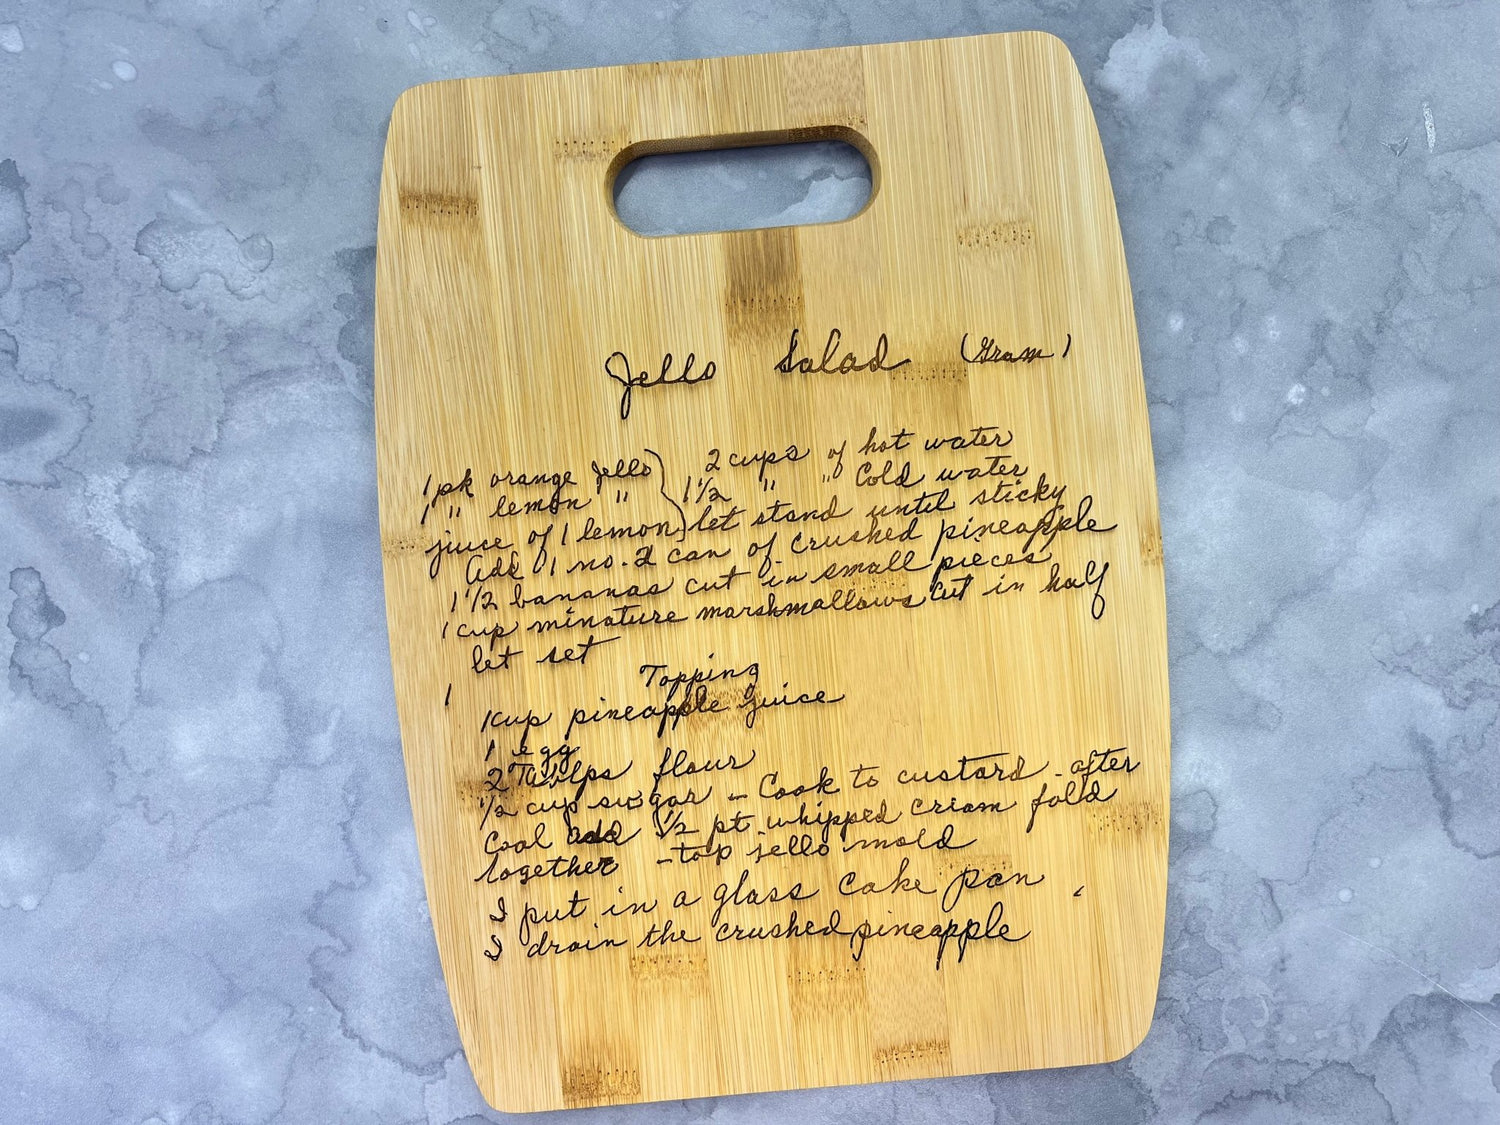 Jello Salad (Gram)
1 pk orange Jello 2 cups of hot water
1 " lemon " 1 1/2 " " Cold water
juice of 1 lemon let stand until sticky
Add 1 no. 2 can of crushed pineapple
1 1/2 bananas cut in small pieces
1 cup minature marshmallows cut in half
let set
1 Topping
1 cup pineapple juice
1 egg
2 Tablps flour
1/2 cup sugar - Cook to custard - after
Cool add 1/2 pt whipped cream fold
together - top jello mold
I put in a glass cake pan
I drain the crushed pineapple